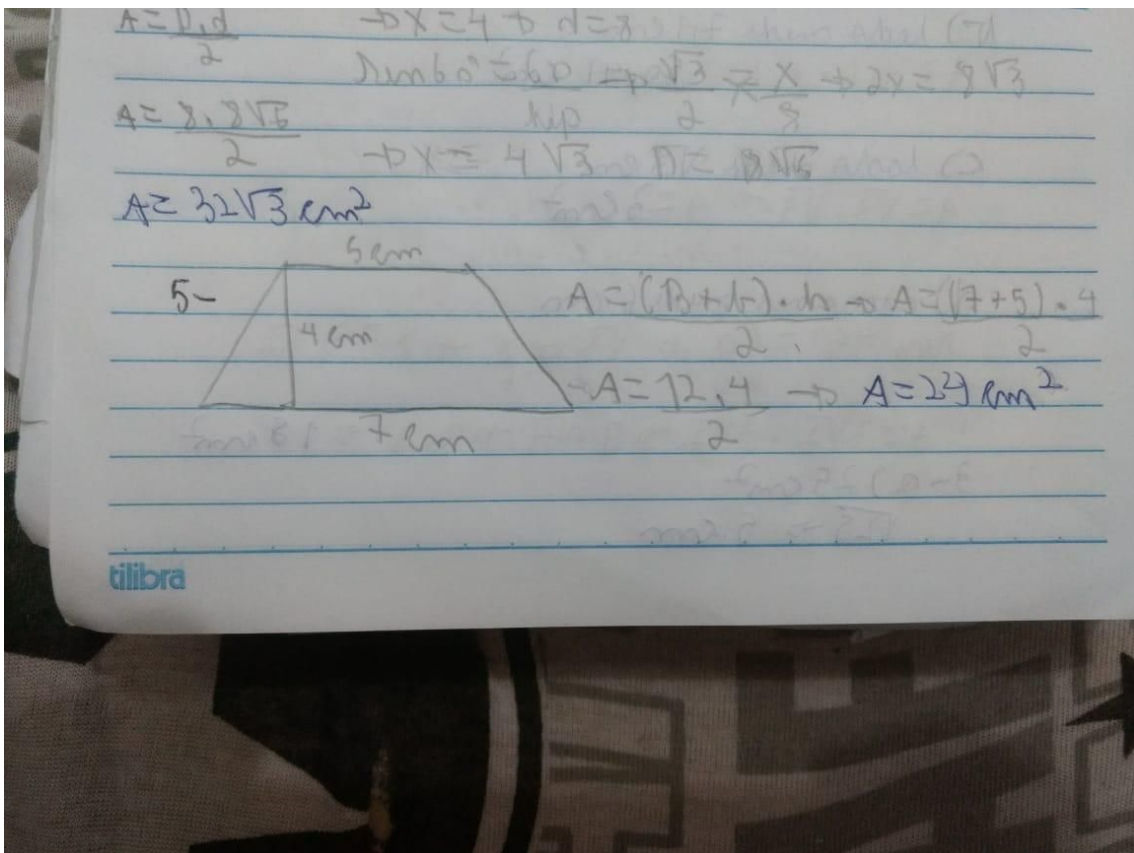 A = D.d / 2 → x = 4 → d = 8
sen60° = CO / hip → √3 / 2 = x / 8 → 2x = 8√3
A = 8.8√3 / 2 → x = 4√3 D = 8√3
A = 32√3 cm²
5 cm
5- A = (B + b).h / 2 → A = (7+5).4 / 2
4 cm
A = 12.4 / 2 → A = 24 cm²
7 cm
tilibra